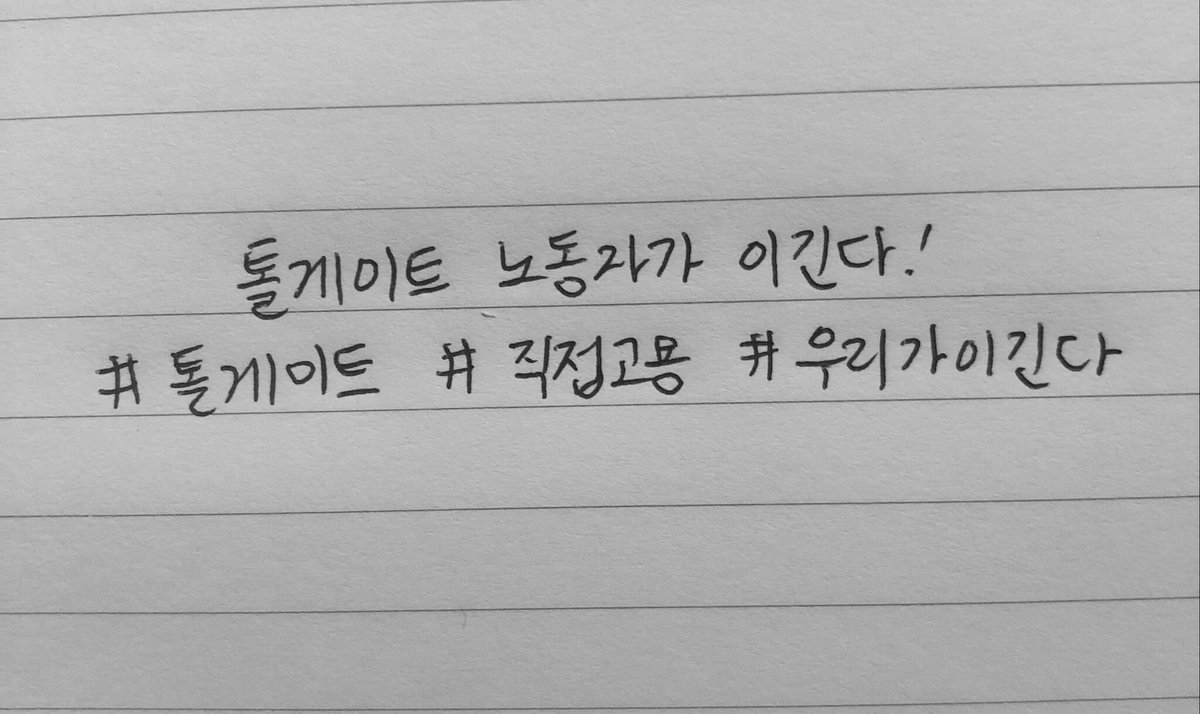 톨게이트 노동자가 이긴다!
# 톨게이트 # 직접고용 # 우리가이긴다